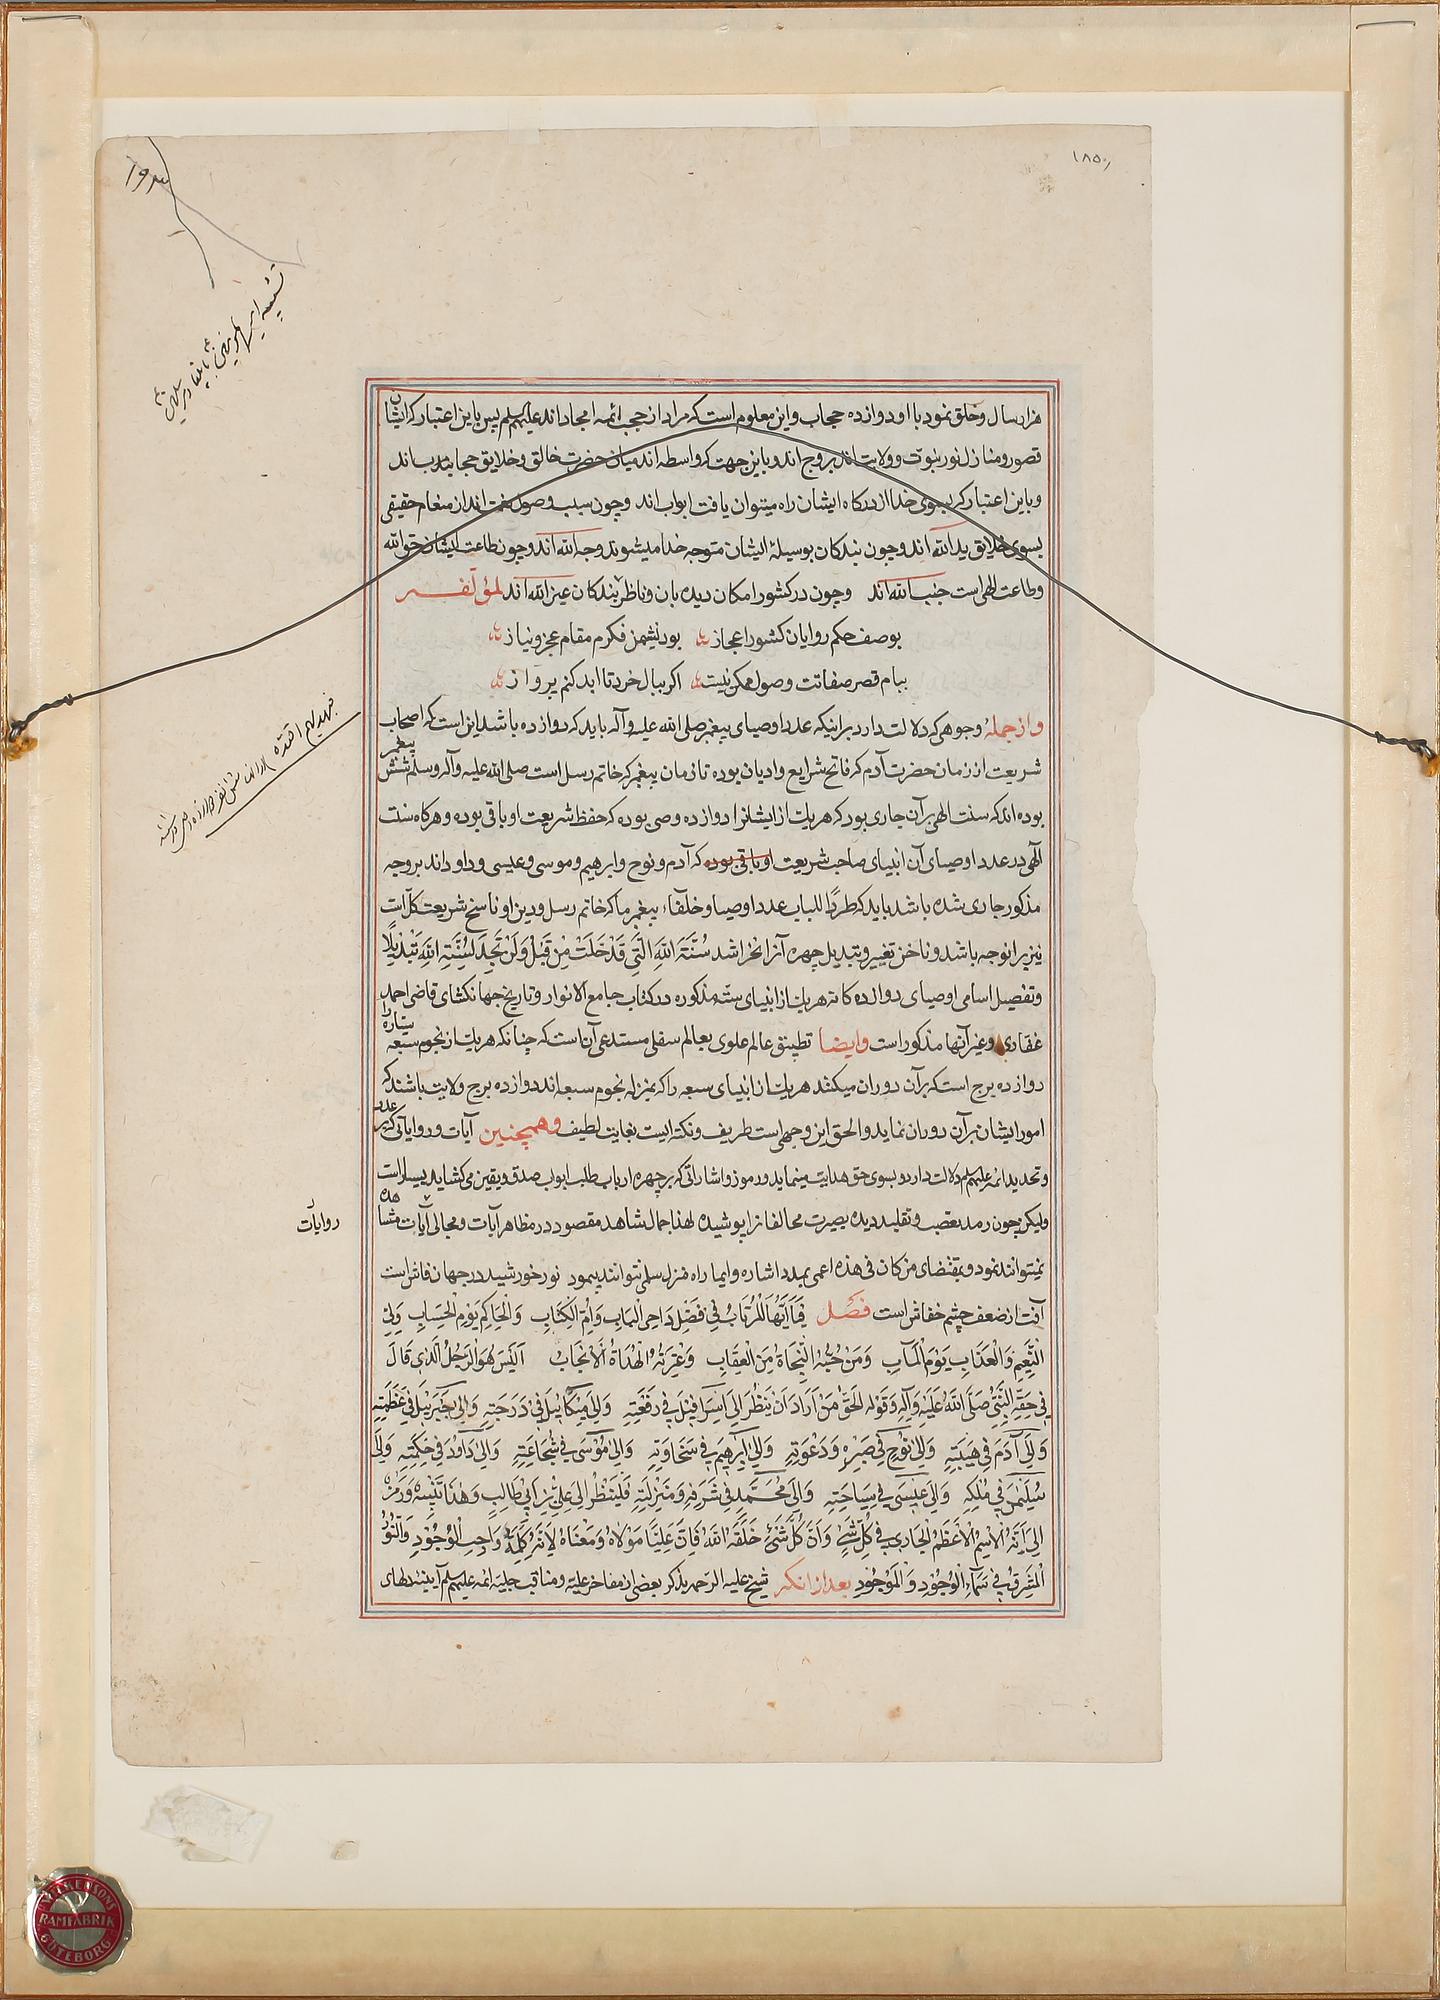 ۱۸۵
هزار سال و خلق نمود با او دوازده حجاب و این معلوم است که مراد از حجب ائمه امجاداند علیهم السلم پس باین اعتبار که ایشان
قصور و منازل نور نبوت و ولایت اند بروج اند و باین جهت که واسطه اند میان حضرت خالق و خلایق حجاب اند
و باین اعتبار که بسوی خدا از درکاه ایشان راه میتوان یافت ابواب اند وچون سبب وصول نعمت اند از منعام حقیقی
بسوی خلایق یدالله اند وچون بندکان بوسیلۀ ایشان متوجه خدا میشوند وجه الله اند وچون طاعت ایشان حق الله
وطاعت الهی است جنب الله اند وچون در کشور امکان دیده بان و ناظر بندکان عین الله اند لمؤلفه
بوصف حکم روایان کشور اعجاز بود نشیمن فکرم مقام عجز و نیاز
ببام قصر صفاتت وصول ممکن نیست اکر ببال خرد تا ابد کنم پرواز
واز جملۀ وجوهی که دلالت دارد بر اینکه عدد اوصیای پیغمبر صلی الله علیه وآله باید که دوازده باشد این است که اصحاب
شریعت از زمان حضرت آدم که فاتح شرایع وادیان بوده تا زمان پیغمبر که خاتم رسل است صلی الله علیه وآله وسلم شش پیغمبر
بوده اند که سنت الهی بر آن جاری بود که هریک از ایشانرا دوازده وصی بوده که حفظ شریعت او باقی بوده و هرکاه سنت
الهی در عدد اوصیای آن انبیای صاحب شریعت او باقی بوده که آدم ونوح وابرهیم وموسی وعیسی وداوداند بر وجه
مذکور جاری شده باشد باید که طرداً للباب عدد اوصیا وخلفاء پیغمبر ما که خاتم رسل ودین او ناسخ شریعت کل است
نیز برانوجه باشد و ناخن تغییر وتبدیل چهره آنرا نخراشد سُنَّةَ اللهِ الَّتِي قَدْ خَلَتْ مِن قَبْلُ وَلَنْ تَجِدَ لِسُنَّةِ اللهِ تَبْدِيلًا
وتفصیل اسامی اوصیای دوازده کانه هریک از انبیای سته مذکوره در کتاب جامع الانوار وتاریخ جهانکشای قاضی احمد
غفاری وغیر آنها مذکور است وایضا تطبیق عالم علوی بعالم سفلی مستدعی آن است که چنانکه هریک از نجوم سبعه ستاره را
دوازده برج است که بر آن دوران میکند هریک از انبیای سبعه را که بمنزله نجوم سبعه اند دوازده برج ولایت باشند که
امور ایشان بر آن دوران نماید والحق این وجهی است طریف ونکته ایست بغایت لطیف وهمچنین آیات وروایاتی که بر عدد
وتحدید ائمه علیهم السلم دلالت دارد وبسوی حق هدایت مینماید ورموز واشاراتی که بر چهره ارباب طلب ابواب صدق ویقین می کشاید بسیار است
ولیکن چون رمد تعصب وتقلید دیده بصیرت مخالفانرا پوشیده لهذا جمال شاهد مقصود در مظاهر آیات ومجالی آیات مشاهده
نمیتوانند نمود وبمقتضای من کان فی هذه اعمی بمدد اشاره وایما راه منزل سلمی نتوانند پیمود نور خورشید در جهان فاش است
آفت از ضعف چشم خفاش است فصل فَيَا أَيُّهَا الْمُرْتَابُ فِي فَضْلِ دَاحِي الْبَابِ وَأُمِّ الْكِتَابِ وَالْحَاكِمِ يَوْمَ الْحِسَابِ وَلِيِّ
النَّعِيمِ وَالْعَذَابِ يَوْمَ الْمَآبِ وَمَنْ حُبُّهُ النَّجَاةُ مِنَ الْعِقَابِ وَعِتْرَتُهُ الْهُدَاةُ الْأَنْجَابُ أَلَيْسَ هُوَ الرَّجُلُ الَّذِي قَالَ
فِي حَقِّهِ النَّبِيُّ صَلَّى اللهُ عَلَيْهِ وَآلِهِ وَقَوْلُهُ الْحَقُّ مَنْ أَرَادَ أَنْ يَنْظُرَ إِلَى إِسْرَافِيلَ فِي رَفْعَتِهِ وَإِلَى مِيكَائِيلَ فِي دَرَجَتِهِ وَإِلَى جَبْرَئِيلَ فِي عَظَمَتِهِ
وَإِلَى آدَمَ فِي هَيْبَتِهِ وَإِلَى نُوحٍ فِي صَبْرِهِ وَدَعْوَتِهِ وَإِلَى إِبْرَهِيمَ فِي سَخَاوَتِهِ وَإِلَى مُوسَى فِي شُجَاعَتِهِ وَإِلَى دَاوُدَ فِي حِكْمَتِهِ وَإِلَى
سُلَيْمٰنَ فِي مُلْكِهِ وَإِلَى عِيسَى فِي سِيَاحَتِهِ وَإِلَى مُحَمَّدٍ فِي شَرَفِهِ وَمَنْزِلَتِهِ فَلْيَنْظُرْ إِلَى عَلِيِّ بْنِ أَبِي طَالِبٍ وَهٰذَا تَنْبِيهٌ وَرَمْزٌ
إِلَى أَنَّهُ الْاِسْمُ الْأَعْظَمُ الْجَارِي فِي كُلِّ شَيْءٍ وَأَنَّ كُلَّ شَيْءٍ خَلَقَهُ اللهُ فَإِنَّ عَلِيًّا مَوْلَاهُ وَمَعْنَاهُ لِأَنَّهُ كَلِمَةُ وَاجِبِ الْوُجُودِ وَالنُّورُ
الْمُشْرِقُ فِي سَمَاءِ الْوُجُودِ وَالْمَوْجُودِ بعد از انکه شیخ علیه الرحمه بذکر بعضی از مفاخر علیه ومناقب جلیه ائمه علیهم السلم آیینه دلهای
روایات
فبهدیهم اقتده
RAMFABRIK
GÖTEBORG